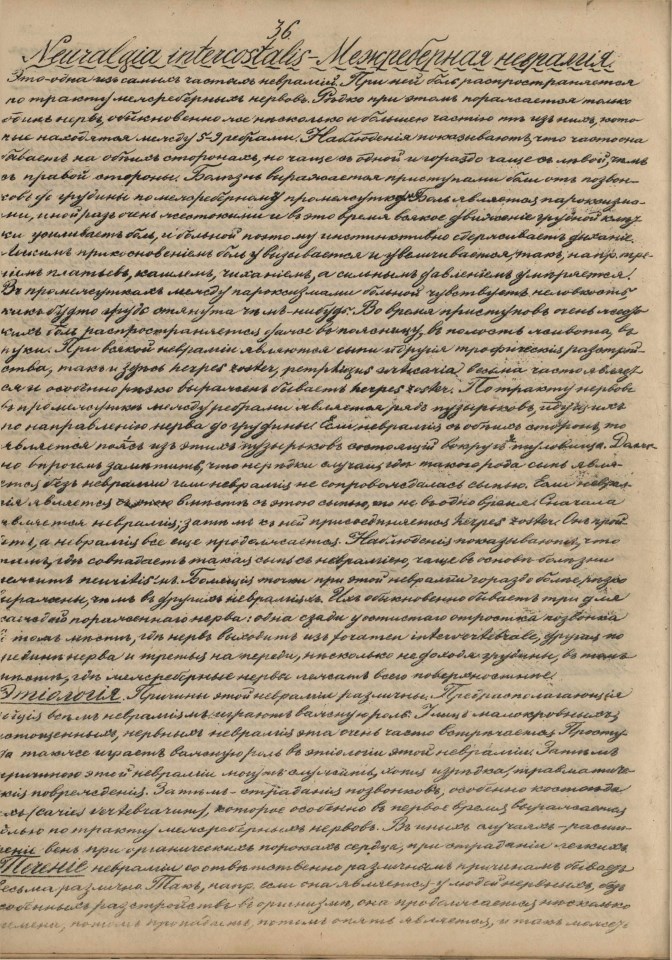 36.
Neuralgia intercostalis - Межреберная невралгія.
Это одна изъ самыхъ частыхъ невралгій. При ней боль распространяется
по тракту межреберныхъ нервовъ. Рѣдко при этомъ поражается только
одинъ нервъ, обыкновенно же нѣсколько и большею частію тѣ изъ нихъ, кото-
рые находятся между 5-9 ребрами. Наблюденія показываютъ, что часто она
бываетъ на обѣихъ сторонахъ, но чаще съ одной и гораздо чаще съ лѣвой, чѣмъ
съ правой стороны. Болѣзнь выражается приступами боли отъ позвон-
ковъ до грудины по межреберному промежутку. Боль является пароксизма-
ми, иной разъ очень жестокими и въ это время всякое движеніе грудной клѣт-
ки усиливаетъ боль, и больной поэтому инстинктивно сдерживаетъ дыханіе.
прикосновеніемъ боль увеличивается, такъ, напр. тре-
ніемъ платьевъ, кашлемъ, чиханіемъ, а сильнымъ давленіемъ умѣряется.
Въ промежуткахъ между пароксизмами больной чувствуетъ неловкость,
какъ будто грудь стянута чѣмъ-нибудь. Во время приступовъ очень жесто-
кихъ боль распространяется даже въ поясницу, въ полость живота, въ
руки. При всякой невралгіи являются сыпи и другія трофическія разстрой-
ства, такъ и здѣсь herpes zoster, pemphigus, urticaria весьма часто являет-
ся и особенно рѣзко выраженъ бываетъ herpes zoster. По тракту нервовъ
въ промежутки между ребрами является рядъ пузырьковъ, идущихъ
по направленію нерва до грудины. Если невралгія съ обѣихъ сторонъ, то
является поясъ изъ этихъ пузырьковъ состоящій вокругъ туловища. Долж-
но впрочемъ замѣтить, что нерѣдки случаи, гдѣ такого рода сыпь явля-
ется безъ невралгіи или невралгія не сопровождалась сыпью. Если неврал-
гія является вмѣстѣ съ этою сыпью, то не въ одно время. Сначала
является невралгія, затѣмъ къ ней присоединяется herpes zoster. Онъ прой-
детъ, а невралгія все еще продолжается. Наблюденія показываютъ, что
тамъ, гдѣ совпадаетъ такая сыпь съ невралгіею, чаще въ основѣ болѣзни
лежитъ neuritis'ъ. Болящія точки при этой невралгіи гораздо болѣе рѣзко
выражены, чѣмъ въ другихъ невралгіяхъ. Ихъ обыкновенно бываетъ три для
каждаго пораженнаго нерва: одна сзади у остистаго отростка позвонка
въ томъ мѣстѣ, гдѣ нервъ выходитъ изъ foramen intervertebrale, другая по
срединѣ нерва и третья на переди, нѣсколько не доходя грудины, въ томъ
мѣстѣ, гдѣ межреберные нервы лежатъ всего поверхностнѣе.
Этіологія. Причины этой невралгіи различны. Предрасполагающія
общія всѣмъ невралгіямъ играютъ важную роль. У лицъ малокровныхъ,
истощенныхъ, нервныхъ невралгія эта очень часто встрѣчается. Просту-
да также играетъ важную роль въ этіологіи этой невралгіи. Затѣмъ
причиною этой невралгіи могутъ служить, хотя изрѣдка, травматиче-
скія поврежденія. Затѣмъ - страданія позвонковъ, особенно костоѣда
ихъ (caries vertebrarum), которое особенно въ первое время выражается
болью по тракту межреберныхъ нервовъ. Въ иныхъ случаяхъ - расши-
реніе венъ при органическихъ порокахъ сердца, при страданіи легкихъ.
Теченіе невралгіи соотвѣтственно различнымъ причинамъ бываетъ
весьма различно. Такъ, напр. если она является у людей нервныхъ, безъ
особенныхъ разстройствъ въ организмѣ, она продолжается нѣсколько
времени, потомъ пропадетъ, потомъ опять является, и такъ можетъ